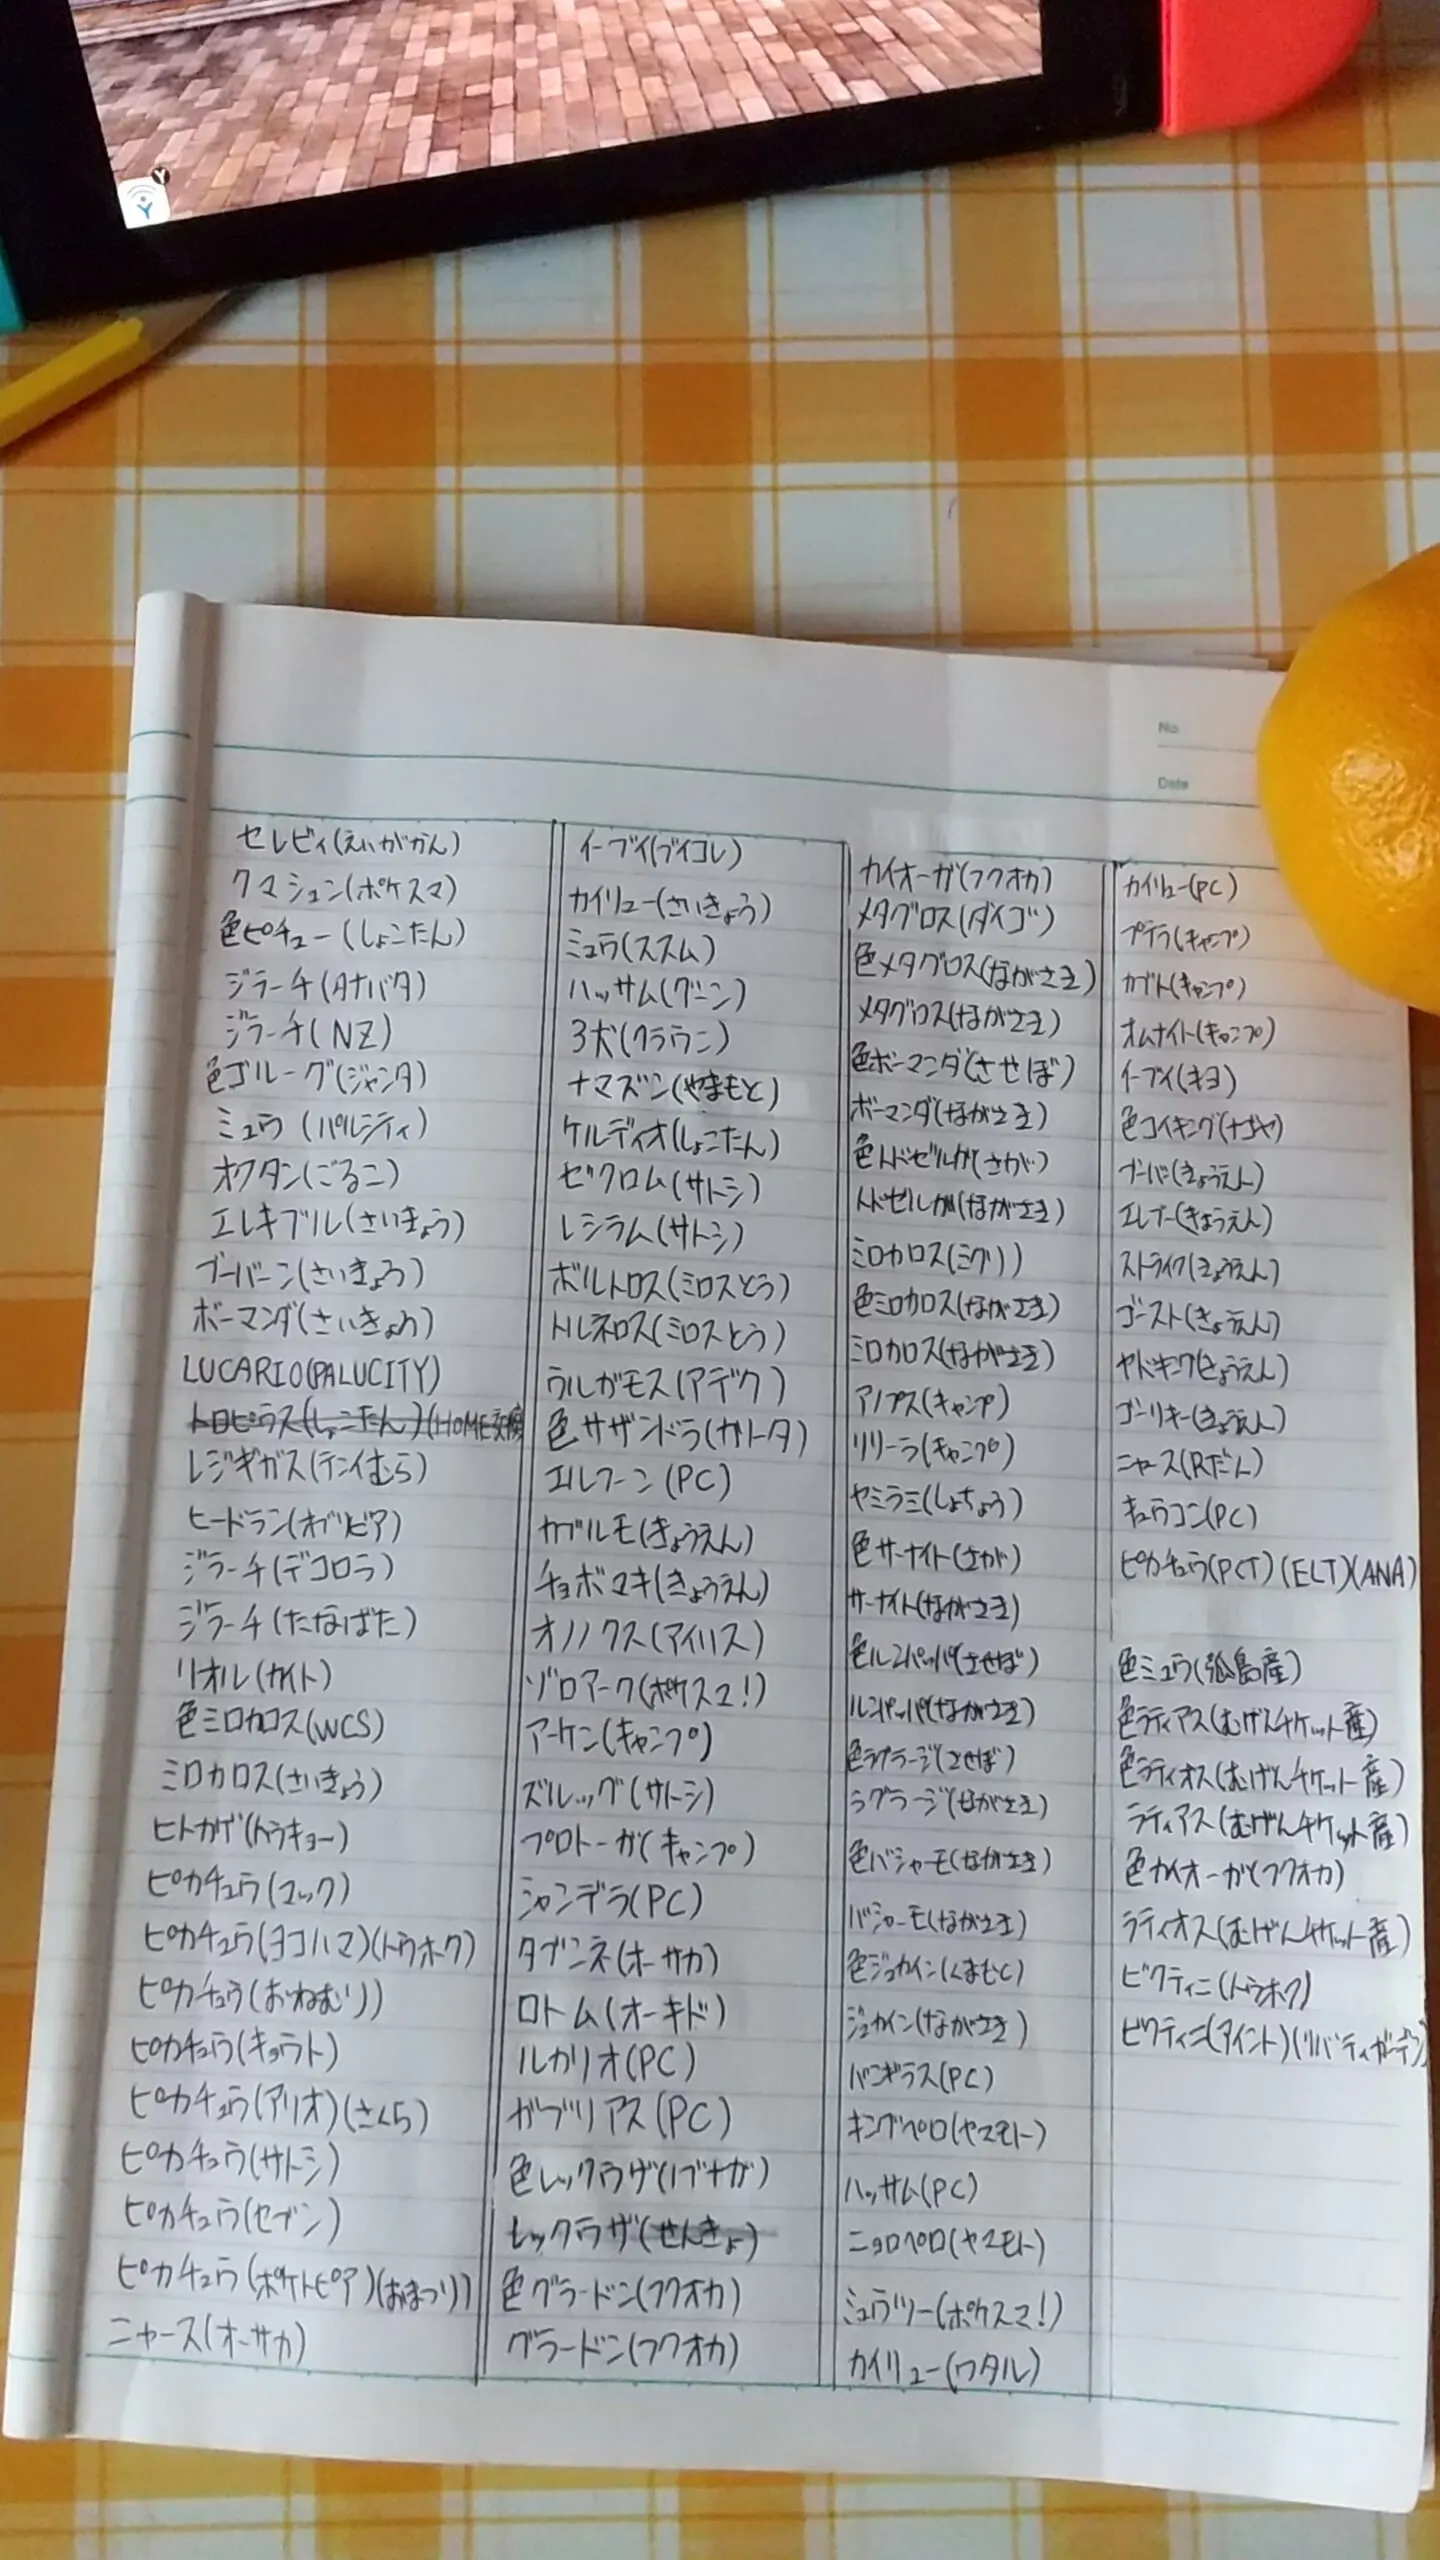 Y
Y
No.
Date
セレビィ(えいがかん)
クマシュン(ポケスマ)
色ピチュー(しょこたん)
ジラーチ(タナバタ)
ジラーチ(NZ)
色ゴルーグ(ジャンタ)
ミュウ(パルシティ)
オクタン(ごるご)
エレキブル(さいきょう)
ブーバーン(さいきょう)
ボーマンダ(さいきょう)
LUCARIO(PALUCITY)
トロピウス(しょこたん)(HOME交換
レジギガス(テンイむら)
ヒードラン(オブリビア)
ジラーチ(デコロラ)
ジラーチ(たなばた)
リオル(カイト)
色ミロカロス(WCS)
ミロカロス(さいきょう)
ヒトカゲ(トウキョー)
ピカチュウ(マック)
ピカチュウ(ヨコハマ)(トウホク)
ピカチュウ(おねむり)
ピカチュウ(キョウト)
ピカチュウ(アリオ)(さくら)
ピカチュウ(サトシ)
ピカチュウ(セブン)
ピカチュウ(ポケトピア)(おまつり)
ニャース(オーサカ)
イーブイ(ブイコレ)
カイリュー(さいきょう)
ミュウ(ススム)
ハッサム(グーン)
3犬(クラウン)
ナマズン(やまもと)
ケルディオ(しょこたん)
ゼクロム(サトシ)
レシラム(サトシ)
ボルトロス(ミロスとう)
トルネロス(ミロスとう)
ウルガモス(アデク)
色サザンドラ(ガトータ)
エルフーン(PC)
カブルモ(きょうえん)
チョボマキ(きょうえん)
オノノクス(アイリス)
ゾロアーク(ポケスマ!)
アーケン(キャンプ)
ズルッグ(サトシ)
プロトーガ(キャンプ)
シャンデラ(PC)
タブンネ(オーサカ)
ロトム(オーキド)
ルカリオ(PC)
ガブリアス(PC)
色レックウザ(ノブナガ)
レックウザ(せんきょ)
色グラードン(フクオカ)
グラードン(フクオカ)
カイオーガ(フクオカ)
メタグロス(ダイゴ)
色メタグロス(ながさき)
メタグロス(ながさき)
色ボーマンダ(させぼ)
ボーマンダ(ながさき)
色トドゼルガ(さが)
トドゼルガ(ながさき)
ミロカロス(ミクリ)
色ミロカロス(ながさき)
ミロカロス(ながさき)
アノプス(キャンプ)
リリーラ(キャンプ)
ヤミラミ(しょちょう)
色サーナイト(さが)
サーナイト(ながさき)
色ルンパッパ(させぼ)
ルンパッパ(ながさき)
色ラグラージ(させぼ)
ラグラージ(ながさき)
色バシャーモ(ながさき)
バシャーモ(ながさき)
色ジュカイン(くまもと)
ジュカイン(ながさき)
バンギラス(PC)
キングペロ(ヤマモト)
ハッサム(PC)
ニョロペロ(ヤマモト)
ミュウツー(ポケスマ!)
カイリュー(ワタル)
カイリュー(PC)
プテラ(キャンプ)
カブト(キャンプ)
オムナイト(キャンプ)
イーブイ(キヨ)
色コイキング(ナゴヤ)
ブーバー(きょうえん)
エレブー(きょうえん)
ストライク(きょうえん)
ゴースト(きょうえん)
ヤドキング(きょうえん)
ゴーリキー(きょうえん)
ニャース(Rだん)
キュウコン(PC)
ピカチュウ(PCT)(ELT)(ANA)
色ミュウ(孤島産)
色ラティアス(むげんチケット産)
色ラティオス(むげんチケット産)
ラティアス(むげんチケット産)
色カイオーガ(フクオカ)
ラティオス(むげんチケット産)
ビクティニ(トウホク)
ビクティニ(アイント)(リバティガーデン)